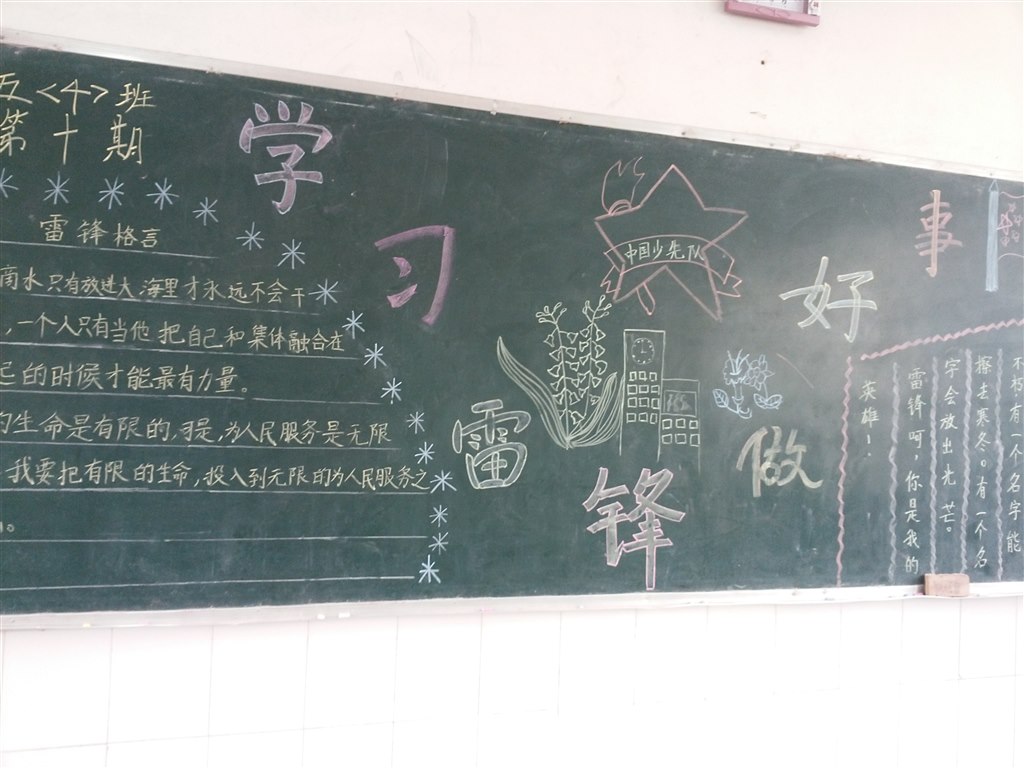 五<4>班
第十期
学习雷锋做好事
雷锋格言
滴水只有放进大海里才永远不会干
，一个人只有当他把自己和集体融合在
起的时候才能最有力量。
的生命是有限的,可是,为人民服务是无限
我要把有限的生命,投入到无限的为人民服务之
中国少先队
不朽,有一个名字能
擦去寒冬。有一个名
字会放出光芒。
雷锋呵,你是我的
英雄!